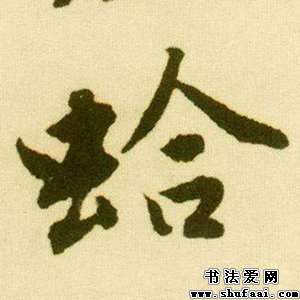 蛤
书法爱网
www.shufaai.com